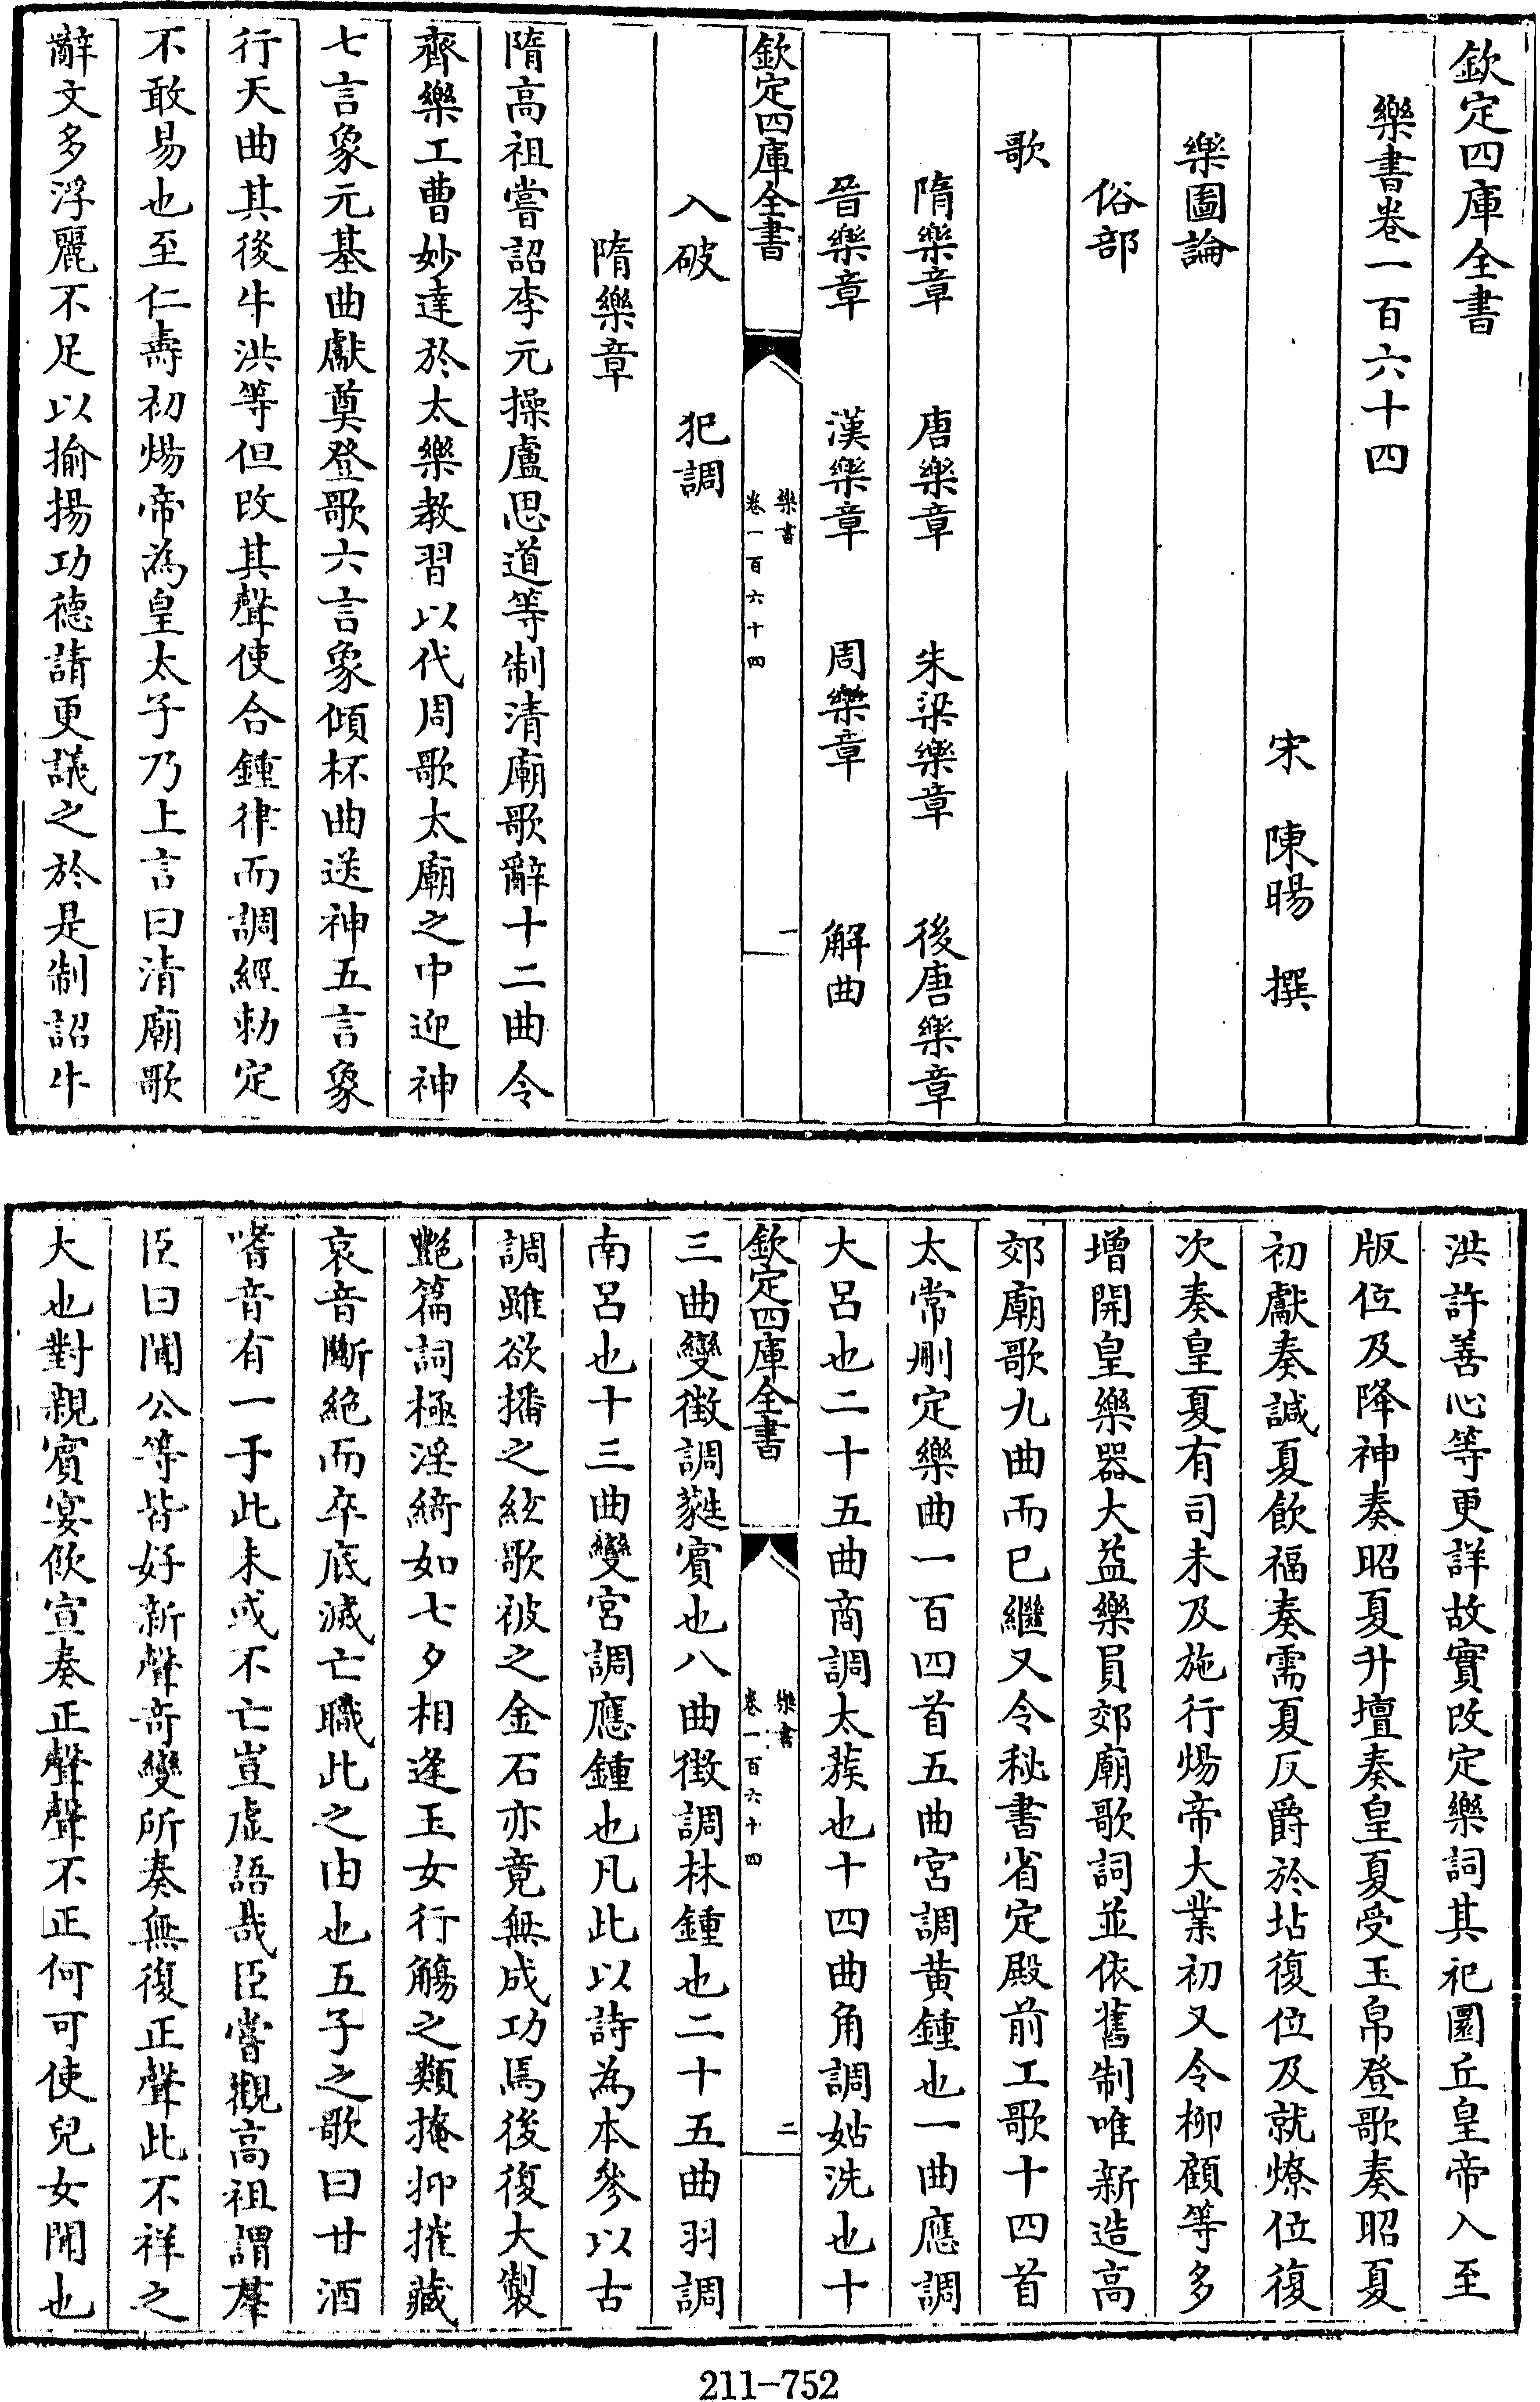 欽定四庫全書
樂書卷一百六十四
宋 陳暘 撰
樂圖論
俗部
歌
隋樂章 唐樂章 朱梁樂章 後唐樂章
晉樂章 漢樂章 周樂章 解曲
欽定四庫全書 樂書 卷一百六十四 一
入破 犯調
隋樂章
隋高祖嘗詔李元操盧思道等制清廟歌辭十二曲令
齊樂工曹妙達於太樂教習以代周歌太廟之中迎神
七言象元基曲獻奠登歌六言象傾杯曲送神五言象
行天曲其後牛洪等但改其聲使合鍾律而調經勅定
不敢易也至仁壽初煬帝為皇太子乃上言曰清廟歌
辭文多浮麗不足以揄揚功德請更議之於是制詔牛
洪許善心等更詳故實改定樂詞其祀圜丘皇帝入至
版位及降神奏昭夏升壇奏皇夏受玉帛登歌奏昭夏
初獻奏諴夏飲福奏需夏反爵於坫復位及就燎位復
次奏皇夏有司未及施行煬帝大業初又令柳顧等多
增開皇樂器大益樂員郊廟歌詞並依舊制唯新造高
郊廟歌九曲而已繼又令秘書省定殿前工歌十四首
太常刪定樂曲一百四首五曲宮調黃鍾也一曲應調
大呂也二十五曲商調太蔟也十四曲角調姑洗也十
欽定四庫全書 樂書 卷一百六十四 二
三曲變徵調蕤賓也八曲徵調林鍾也二十五曲羽調
南呂也十三曲變宮調應鍾也凡此以詩為本參以古
調雖欲播之絃歌被之金石亦竟無成功焉後復大製
艷篇詞極淫綺如七夕相逢玉女行觴之類掩抑摧藏
哀音斷絕而卒底滅亡職此之由也五子之歌曰甘酒
嗜音有一于此未或不亡豈虛語哉臣嘗觀高祖謂羣
臣曰聞公等皆好新聲奇變所奏無復正聲此不祥之
大也對親賓宴飲宣奏正聲聲不正何可使兒女聞也
211-752